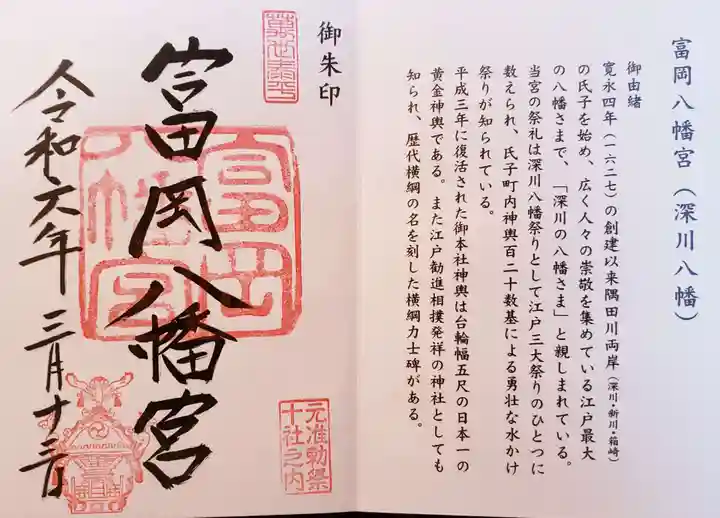 富岡八幡宮(深川八幡)
御由緒
寛永四年(一六二七)の創建以来隅田川両岸(深川・新川・箱崎)
の氏子を始め、広く人々の崇敬を集めている江戸最大
の八幡さまで、「深川の八幡さま」と親しまれている。
当宮の祭礼は深川八幡祭りとして江戸三大祭りのひとつに
数えられ、氏子町内神輿百二十数基による勇壮な水かけ
祭りが知られている。
平成三年に復活された御本社神輿は台輪幅五尺の日本一の
黄金神輿である。また江戸勧進相撲発祥の神社としても
知られ、歴代横綱の名を刻した横綱力士碑がある。
御朱印
萬世泰平
富岡八幡宮
富岡
八幡宮
元准勅祭
十社之内
令和六年三月十三日